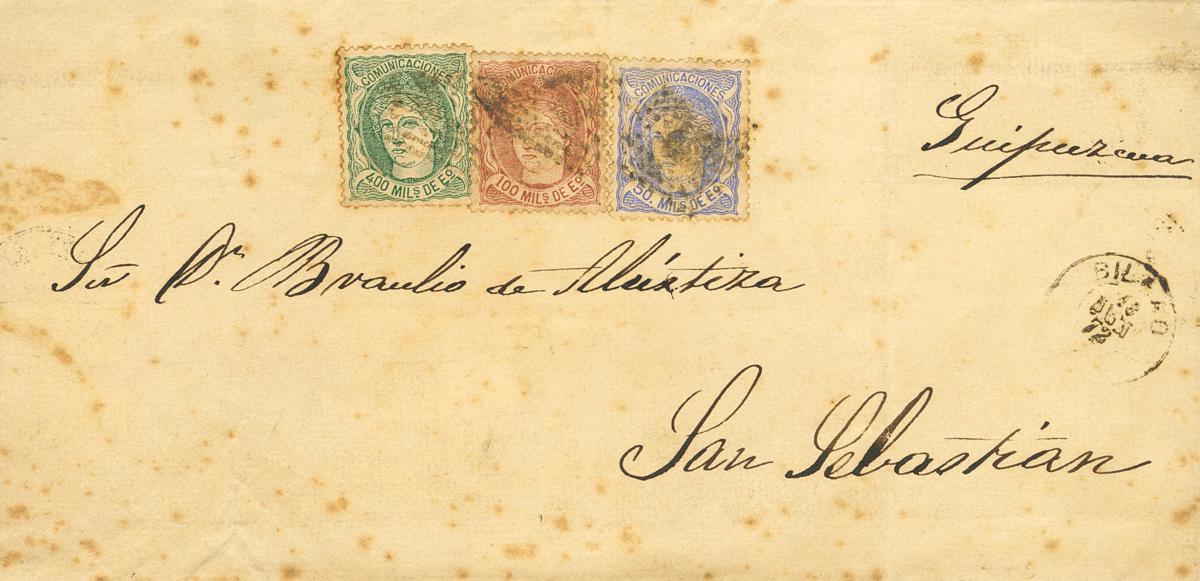 COMUNICACIONES
400 MILS DE Eo
COMUNICACIONES
100 MILS DE Eo
COMUNICACIONES
50. MILS DE Eo
Guipuzcua
Sr Dn Braulio de Alústiza
BILBAO
JUN
72
San Sebastián